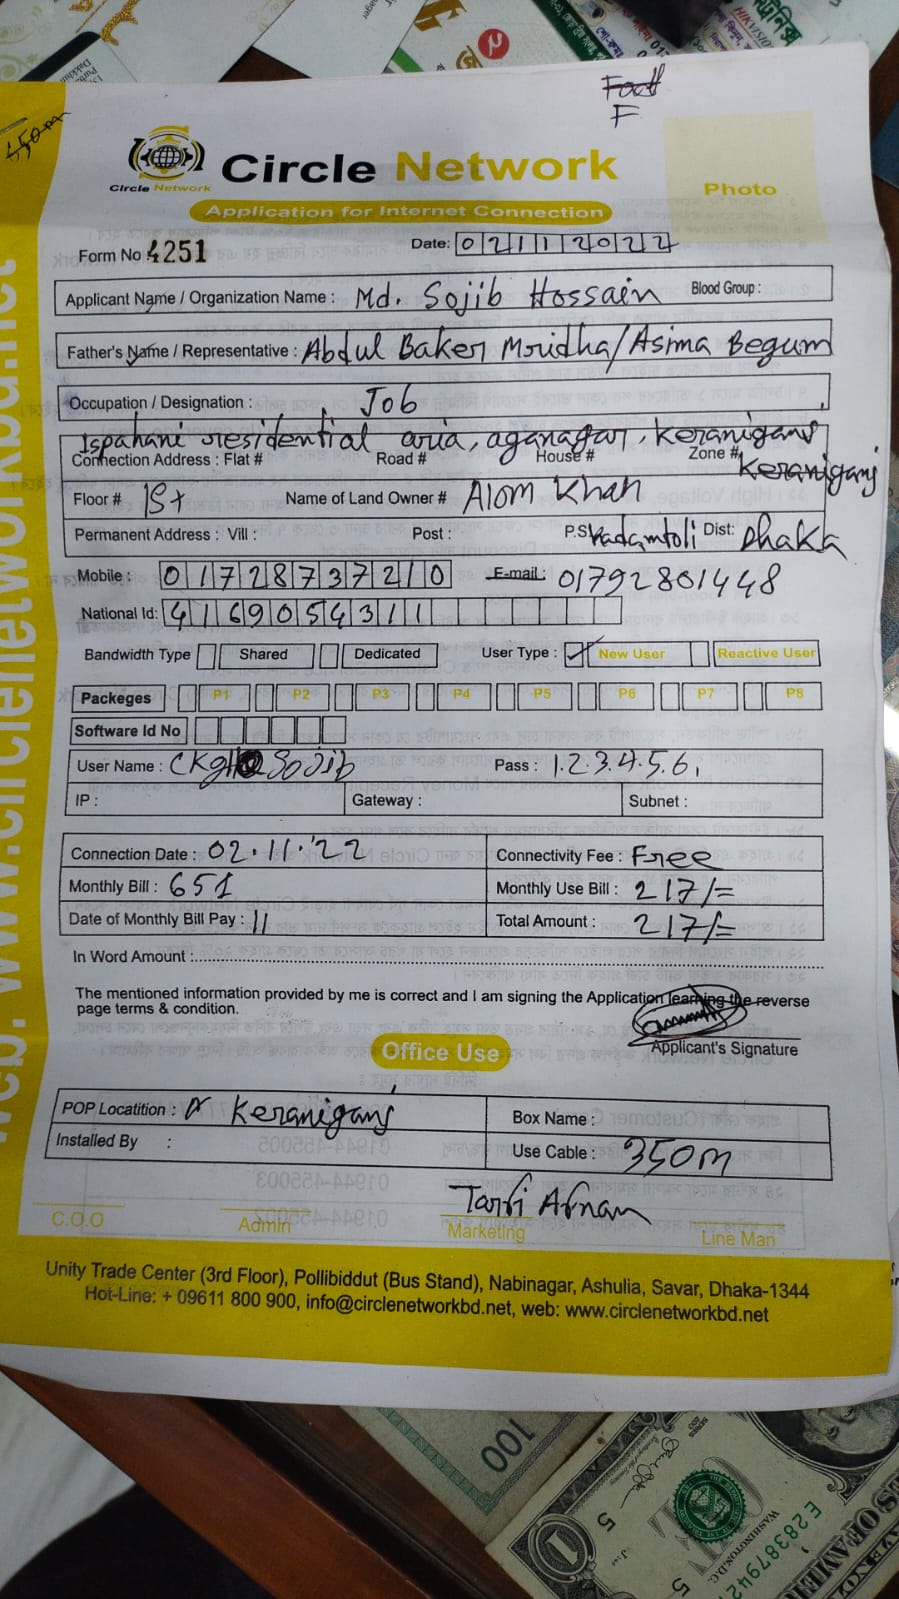 Foott
F
350m
Circle Network
Circle Network
Photo
Application for Internet Connection
Form No 4251
Date: 02112022
Applicant Name / Organization Name : Md. Sojib Hossain Blood Group :
Father's Name / Representative : Abdul Baker Mridha/Asima Begum
Occupation / Designation : Job
Ispahani residential aria, aganagar, Keraniganj
Connection Address : Flat # Road # House # Zone # Keraniganj
Floor # 1St Name of Land Owner # Alom Khan
Permanent Address : Vill : Post : P.S Kadamtoli Dist: Dhaka
Mobile : 01728737210 E-mail : 01792801448
National Id: 4169054311
Bandwidth Type Shared Dedicated User Type : ✓ New User Reactive User
Packeges P1 P2 P3 P4 P5 P6 P7 P8
Software Id No
User Name : CKg Sojib Pass : 1.2.3.4.5.6.
IP : Gateway : Subnet :
Connection Date : 02.11.'22 Connectivity Fee : Free
Monthly Bill : 651 Monthly Use Bill : 217/=
Date of Monthly Bill Pay : 11 Total Amount : 217/=
In Word Amount :
The mentioned information provided by me is correct and I am signing the Application learning the reverse
page terms & condition.
Applicant's Signature
Office Use
POP Locatition : Keraniganj Box Name :
Installed By : Use Cable : 350m
Afnan
C.O.O Admin Marketing Line Man
Unity Trade Center (3rd Floor), Pollibiddut (Bus Stand), Nabinagar, Ashulia, Savar, Dhaka-1344
Hot-Line: + 09611 800 900, info@circlenetworkbd.net, web: www.circlenetworkbd.net
web: www.circlenetworkbd.net
HIKVISION
100
1
WASHINGTON, D.C.
5